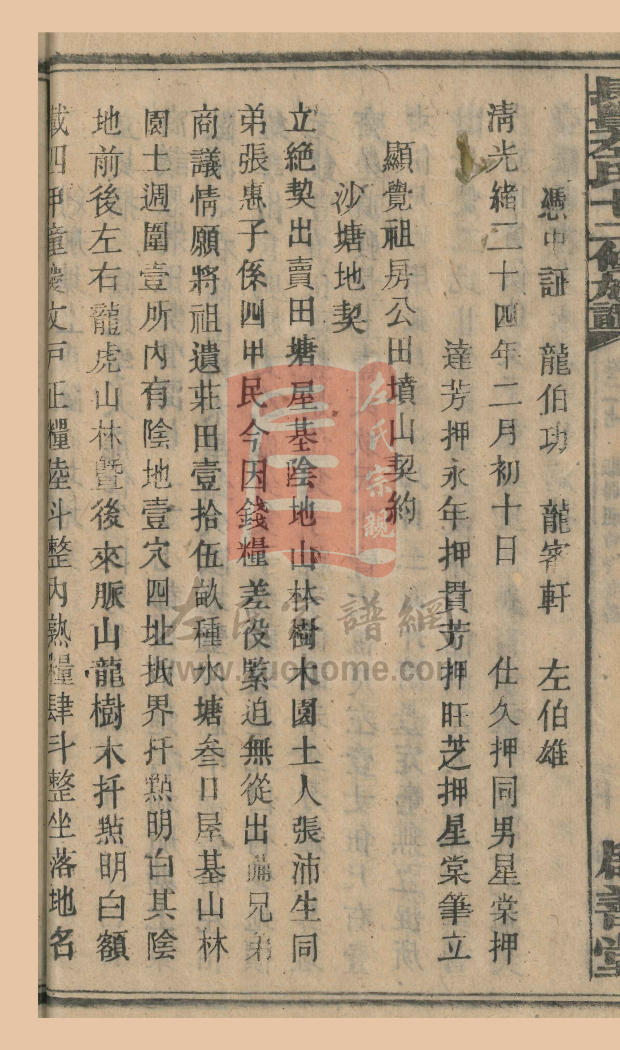 左氏十二修族譜
善堂
憑中証　龍伯功　龍寄軒　左伯雄
清光緒二十四年二月初十日　仕久押同男星棠押
達芳押永年押貫芳押旺芝押星棠筆立
顯覺祖房公田墳山契約
沙塘地契
立絶契出賣田塘屋基陰地山林樹木園土人張沛生同
弟張惠子係四甲民今因錢糧差役緊迫無從出備兄弟
商議情願將祖遺莊田壹拾伍畝種水塘叁口屋基山林
園土週圍壹所內有陰地壹穴四址抵界扦點明白其陰
地前後左右龍虎山林暨後來脈山龍樹木扦點明白額
載四甲童慶文戶正糧陸斗整內熟糧肆斗整坐落地名
左氏宗親
左氏宗譜網
www.zuohome.com